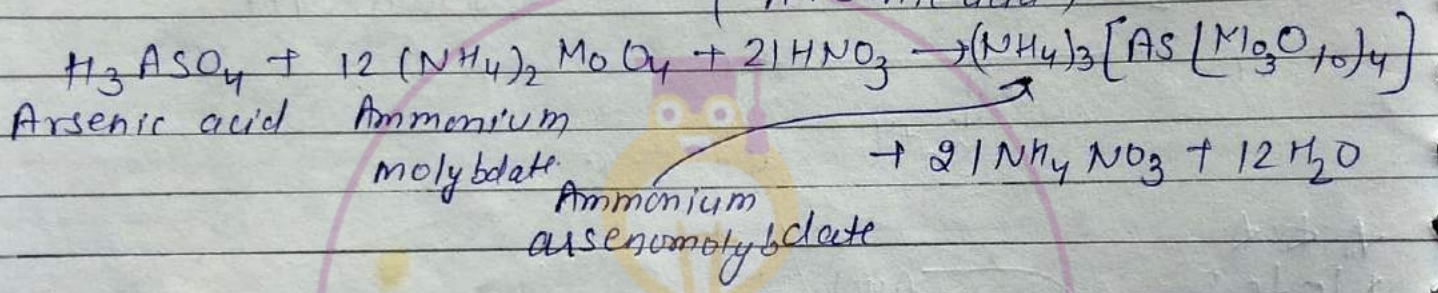 H₃ASO₄ + 12 (NH₄)₂ MoO₄ + 21HNO₃ → (NH₄)₃ [AS (Mo₃O₁₀)₄]
Arsenic acid Ammonium
molybdate.
+ 21NH₄NO₃ + 12H₂O
Ammonium
arsenomolybdate